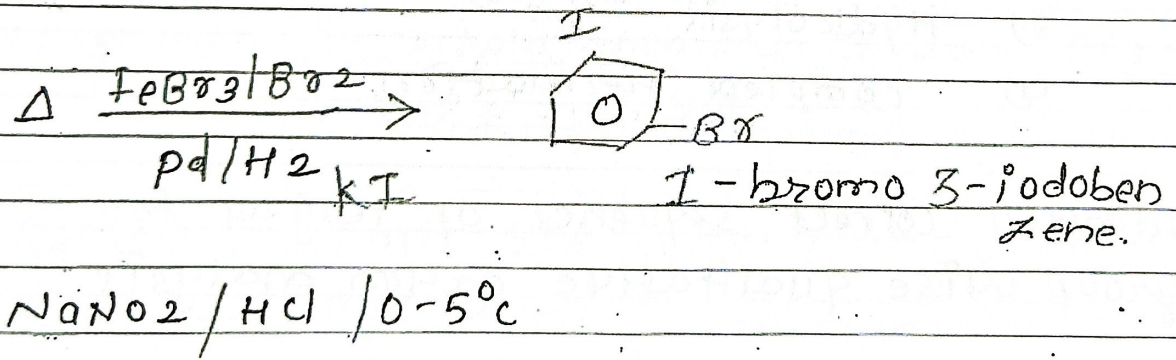 I
Δ FeBr3/Br2
O -Br
pd/H2
KI
1-bromo 3-iodoben
zene.
NaNO2/HCl/0-5°C